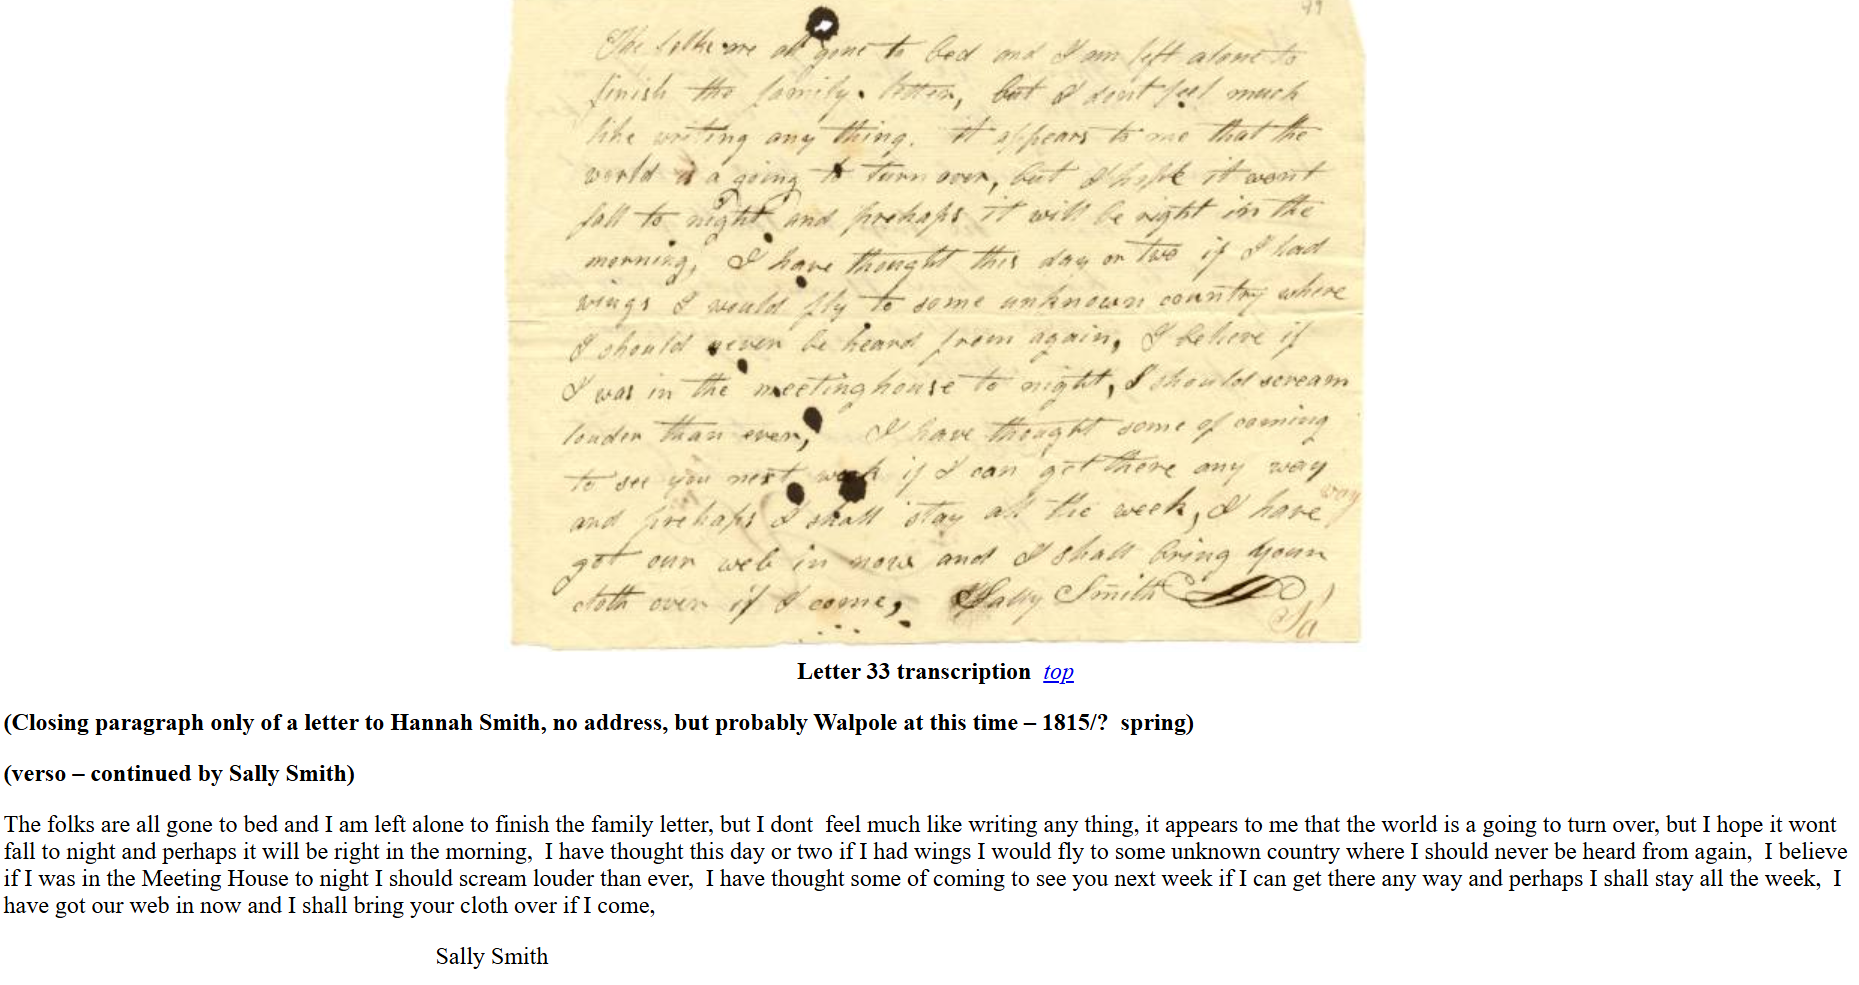 49
The folks are all gone to bed and I am left alone to
finish the family letter, but I dont feel much
like writing any thing. it appears to me that the
world is a going to turn over, but I hope it wont
fall to night and prehaps it will be right in the
morning, I have thought this day or two if I had
wings I would fly to some unknown country where
I should never be heard from again, I believe if
I was in the meeting house to night, I should scream
louder than ever, I have thought some of coming
to see you next week if I can get there any way
way
and prehaps I shall stay all the week, I have
got our web in now and I shall bring your
cloth over if I come, Sally Smith
Sa
Letter 33 transcription top
(Closing paragraph only of a letter to Hannah Smith, no address, but probably Walpole at this time – 1815/? spring)
(verso – continued by Sally Smith)
The folks are all gone to bed and I am left alone to finish the family letter, but I dont feel much like writing any thing, it appears to me that the world is a going to turn over, but I hope it wont
fall to night and perhaps it will be right in the morning, I have thought this day or two if I had wings I would fly to some unknown country where I should never be heard from again, I believe
if I was in the Meeting House to night I should scream louder than ever, I have thought some of coming to see you next week if I can get there any way and perhaps I shall stay all the week, I
have got our web in now and I shall bring your cloth over if I come,
Sally Smith